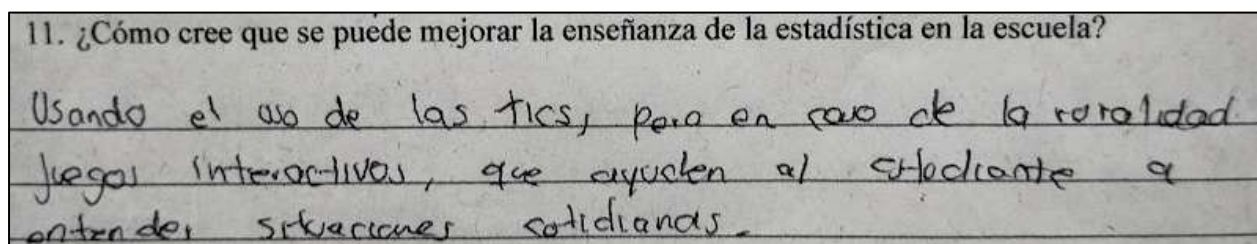 11. ¿Cómo cree que se puede mejorar la enseñanza de la estadística en la escuela?
Usando el uso de las tics, pero en caso de la ruralidad
juegos interactivos, que ayuden al estudiante a
entender situaciones cotidianas.